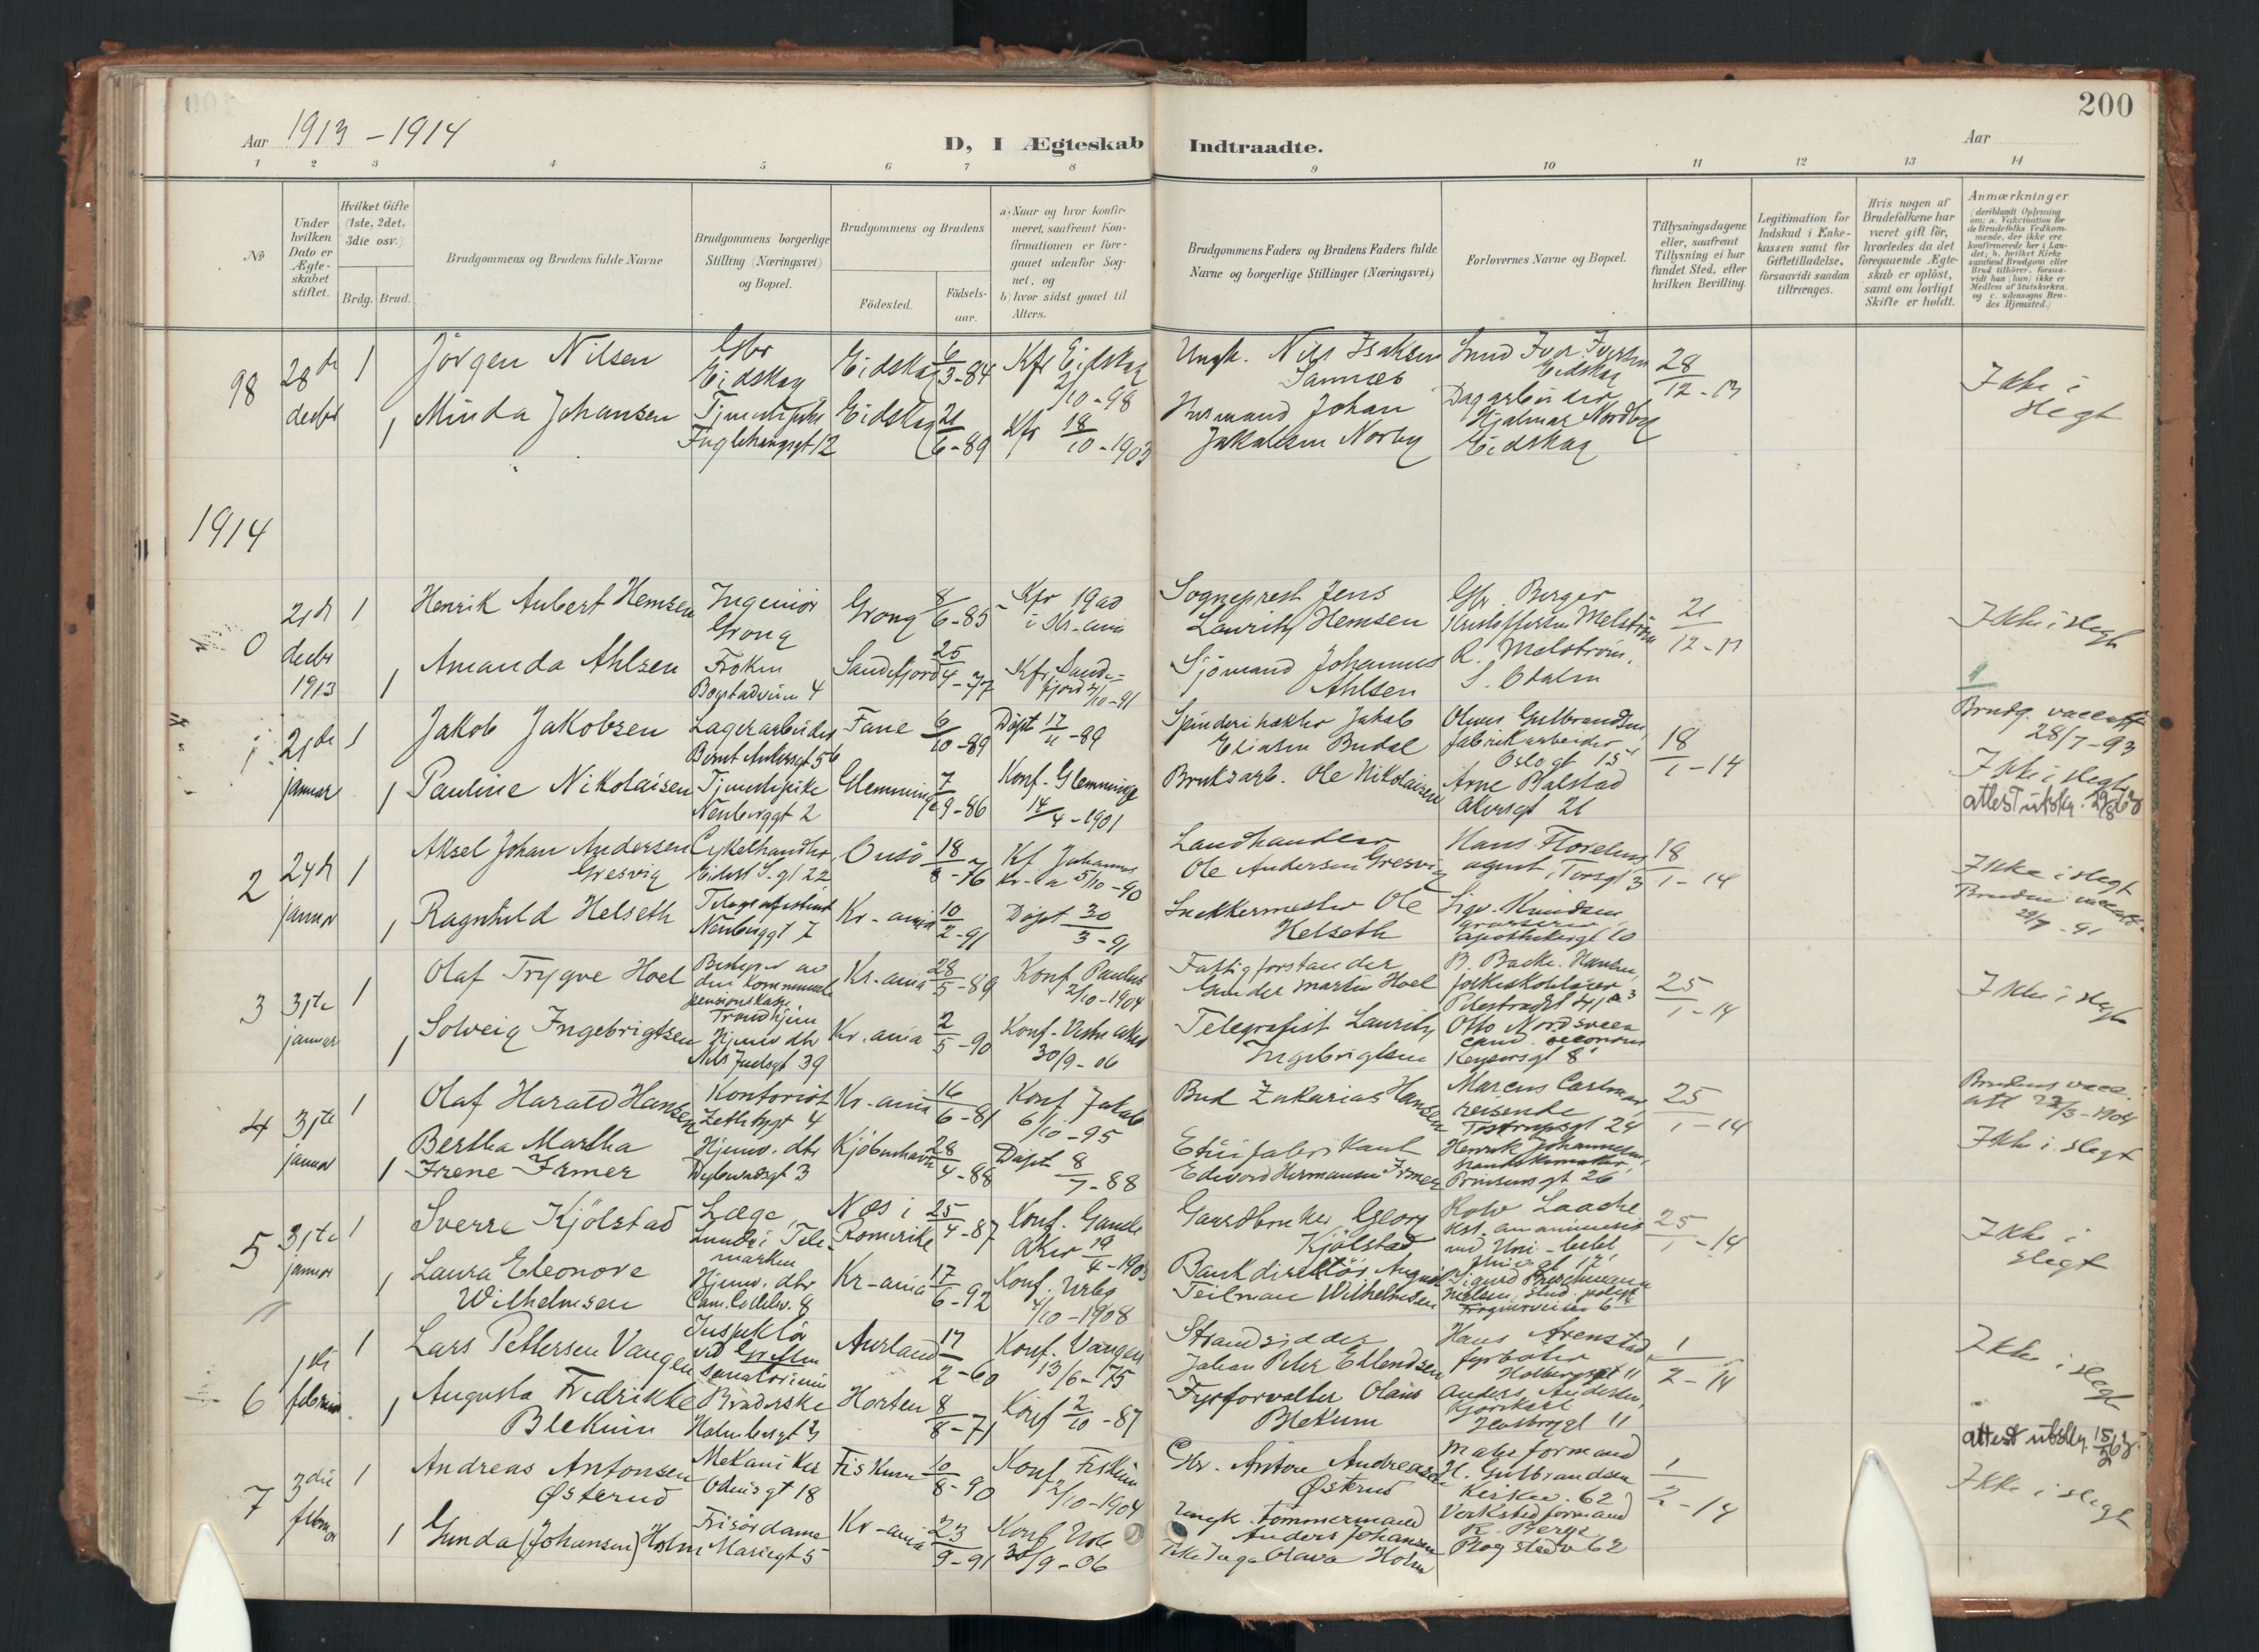 200
Aar 1913 - 1914
D, I Ægteskab Indtraadte.
Aar
1 2 3 4 5 6 7 8 9 10 11 12 13 14
№
Under hvilken Dato er Ægteskabet stiftet.
Hvilket Gifte (1ste, 2det, 3die osv.)
Brdg. Brud.
Brudgommens og Brudens fulde Navne
Brudgommens borgerlige Stilling (Næringsvei) og Bopæl.
Brudgommens og Brudens
Födested.
Födsels-aar.
a) Naar og hvor konfirmeret, saafremt Konfirmationen er foregaaet udenfor Sognet, og
b) hvor sidst gaaet til Alters.
Brudgommens Faders og Brudens Faders fulde Navne og borgerlige Stillinger (Næringsvei)
Forlovernes Navne og Bopæl.
Tillysningsdagene eller, saafremt Tillysning ei har fundet Sted, efter hvilken Bevilling.
Legitimation for Indskud i Enkekassen samt for Giftetilladelse, forsaavidt saadan tiltrænges.
Hvis nogen af Brudefolkene har været gift för, hvorledes da det foregaaende Ægteskab er oplöst, samt om lovligt Skifte er holdt.
Anmærkninger
(deriblandt Oplysning om: a. Vakcination for de Brudefolks Vedkommende, der ikke ere konfirmerede her i Landet; b. hvilket Kirkesamfund Brudgom eller Brud tilhörer, forsaavidt han (hun) ikke er Medlem af Statskirken. og c. udensogns Brudes Hjemsted.)
98 28de decbr 1 Jörgen Nilsen Gbr Eidskog Eidskog 6/3-84 Kfr Eidskog 2/10-98 Ungk. Nils Isaksen 28/12-13 Ikke i slegt
1 Minda Johansen Tjenestepike Fuglehaugsgt 12 Eidskog 21/6-89 Kfr 18/10-1903 Husmand Johan Jakobsen Norby Dagarbeider Hjalmar Nordby Eidskog
1914
0 21de decbr 1913 1 Henrik Aubert Hemsen Ingeniör Grong Grong 8/6-85 Sogneprest Jens Lauritz Hemsen Gbr. Birger Kristoffersen Melström 21/12-13 Ikke i slegt
1 Amanda Ahlsen Fröken Bogstadveien 4 Sandefjord 25/4-77 Kfr. Sandefjord 4/10-91 Sjömand Johannes Ahlsen R. Melström,
1 21de januar 1 Jakob Jakobsen Lagerarbeider Bernt Ankersgt 5b Fane 6/10-89 Döpt 17/11-89 Jakob Eliasen Budal Oluves Gulbrandsen, fabrikarbeider Oslogt 15 18/1-14 Brudg. vacc. att 28/7-93
Ikke i slegt
attest utstg.
1 Pauline Nikolaisen Tjenestepike Neuberggt 2 Glemminge 7/9-86 Konf. Glemminge 14/4-1901 Bruksarb. Ole Nikolaisen Arne Balstad Akersgt 21
2 24de januar 1 Aksel Johan Andersen Gresvig Cykelhandler Onsö 18/8-76 Kf Johannes Kr-a 5/10-90 Landhandler Ole Andersen Gresvig Hans Florelius agent, Torsgt 3 18/1-14 Ikke i slegt
1 Ragnhild Helseth Telegrafistinde Neuberggt 7 Kr-ania 10/2-91 Döpt 30/3-91 Snekkermester Ole Helseth Sigv. Knudsen, grosserer apothekergt 10
3 31te januar 1 Olaf Trygve Hoel Bestyrer av den kommunale pensionskasse, Trondhjem Kr-ania 28/5-89 Konf Paulus 2/10-1904 Fattigforstander Gunder Martin Hoel B. Backe. Hansen, folkeskolelærer Pilestrædet 41 25/1-14 Ikke i slegt
1 Solveig Ingebrigtsen Hjemv. dtr Nils Juelsgt 39 Kr. ania 2/5-90 Konf. Vestre aker 30/9-06 Telegrafist Lauritz Ingebrigtsen Otto Nordsveen cand. oeconom Keysersgt 8
4 31te januar 1 Olaf Harald Hansen Kontorist Zetlitzgt 4 Kr-ania 16/6-81 Konf Jakob 6/10-95 Bud Zakarias Hansen Marcus Carlman, reisende 25/1-14
1 Bertha Martha Irene Irmer Hjemv. dtr Kjöbenhavn 28/4-88 Döpt 8/7-88 Etuifabrikant Edvard Hermann Irmer Henrik Johannesen, Prinsensgt 26 Ikke i slegt
5 31te januar 1 Sverre Kjölstad Læge Lunde i Telemarken Nes i Romerike 25/4-87 Konf. Gamle Aker 19/4-1903 Gaardbruker Georg Kjölstad Rolv Laache 25/1-14 Ikke i slegt
1 Laura Eleonore Wilhelmsen Hjemv. dtr Cam. Collettv. 8 Kr-ania 17/6-92 Konf. Urbg 4/10-1908 Bankdirektör August Teilman Wilhelmsen
6 1ste februar 1 Lars Pettersen Vangen Inspektör ved Grefsen Sanatorium Aurland 17/2-60 Konf. Vangen 13/6-75 Strandsidder Johan Peter Ellendsen Hans Arenstad, fyrböter Holbergsgt 11 1/2-14 Ikke i slegt
1 Augusta Fredrikke Blekum Broderske Holmbergt 3 Horten 8/8-71 Konf 2/10-87 Fyrforvalter Olaus Blekum Anders Andersen, 11
7 3die februar 1 Andreas Antonsen Østerud Mekaniker Odinsgt 18 Fiskum 10/8-90 Konf Fiskum 2/10-1904 Gbr. Anton Andreasen Østerud Malerformand H. Gulbrandsen Kirkev. 62 1/2-14 attest utstg. 15/2
Ikke i slegt
1 Gunda (Johansen) Holm Frisördame Mariegt 5 Kr-ania 23/9-91 Konf 30/9-06 Ungk. Tömmermand Anders Johansen Pike Inga Olava Holm Verkstedformand R. Berge